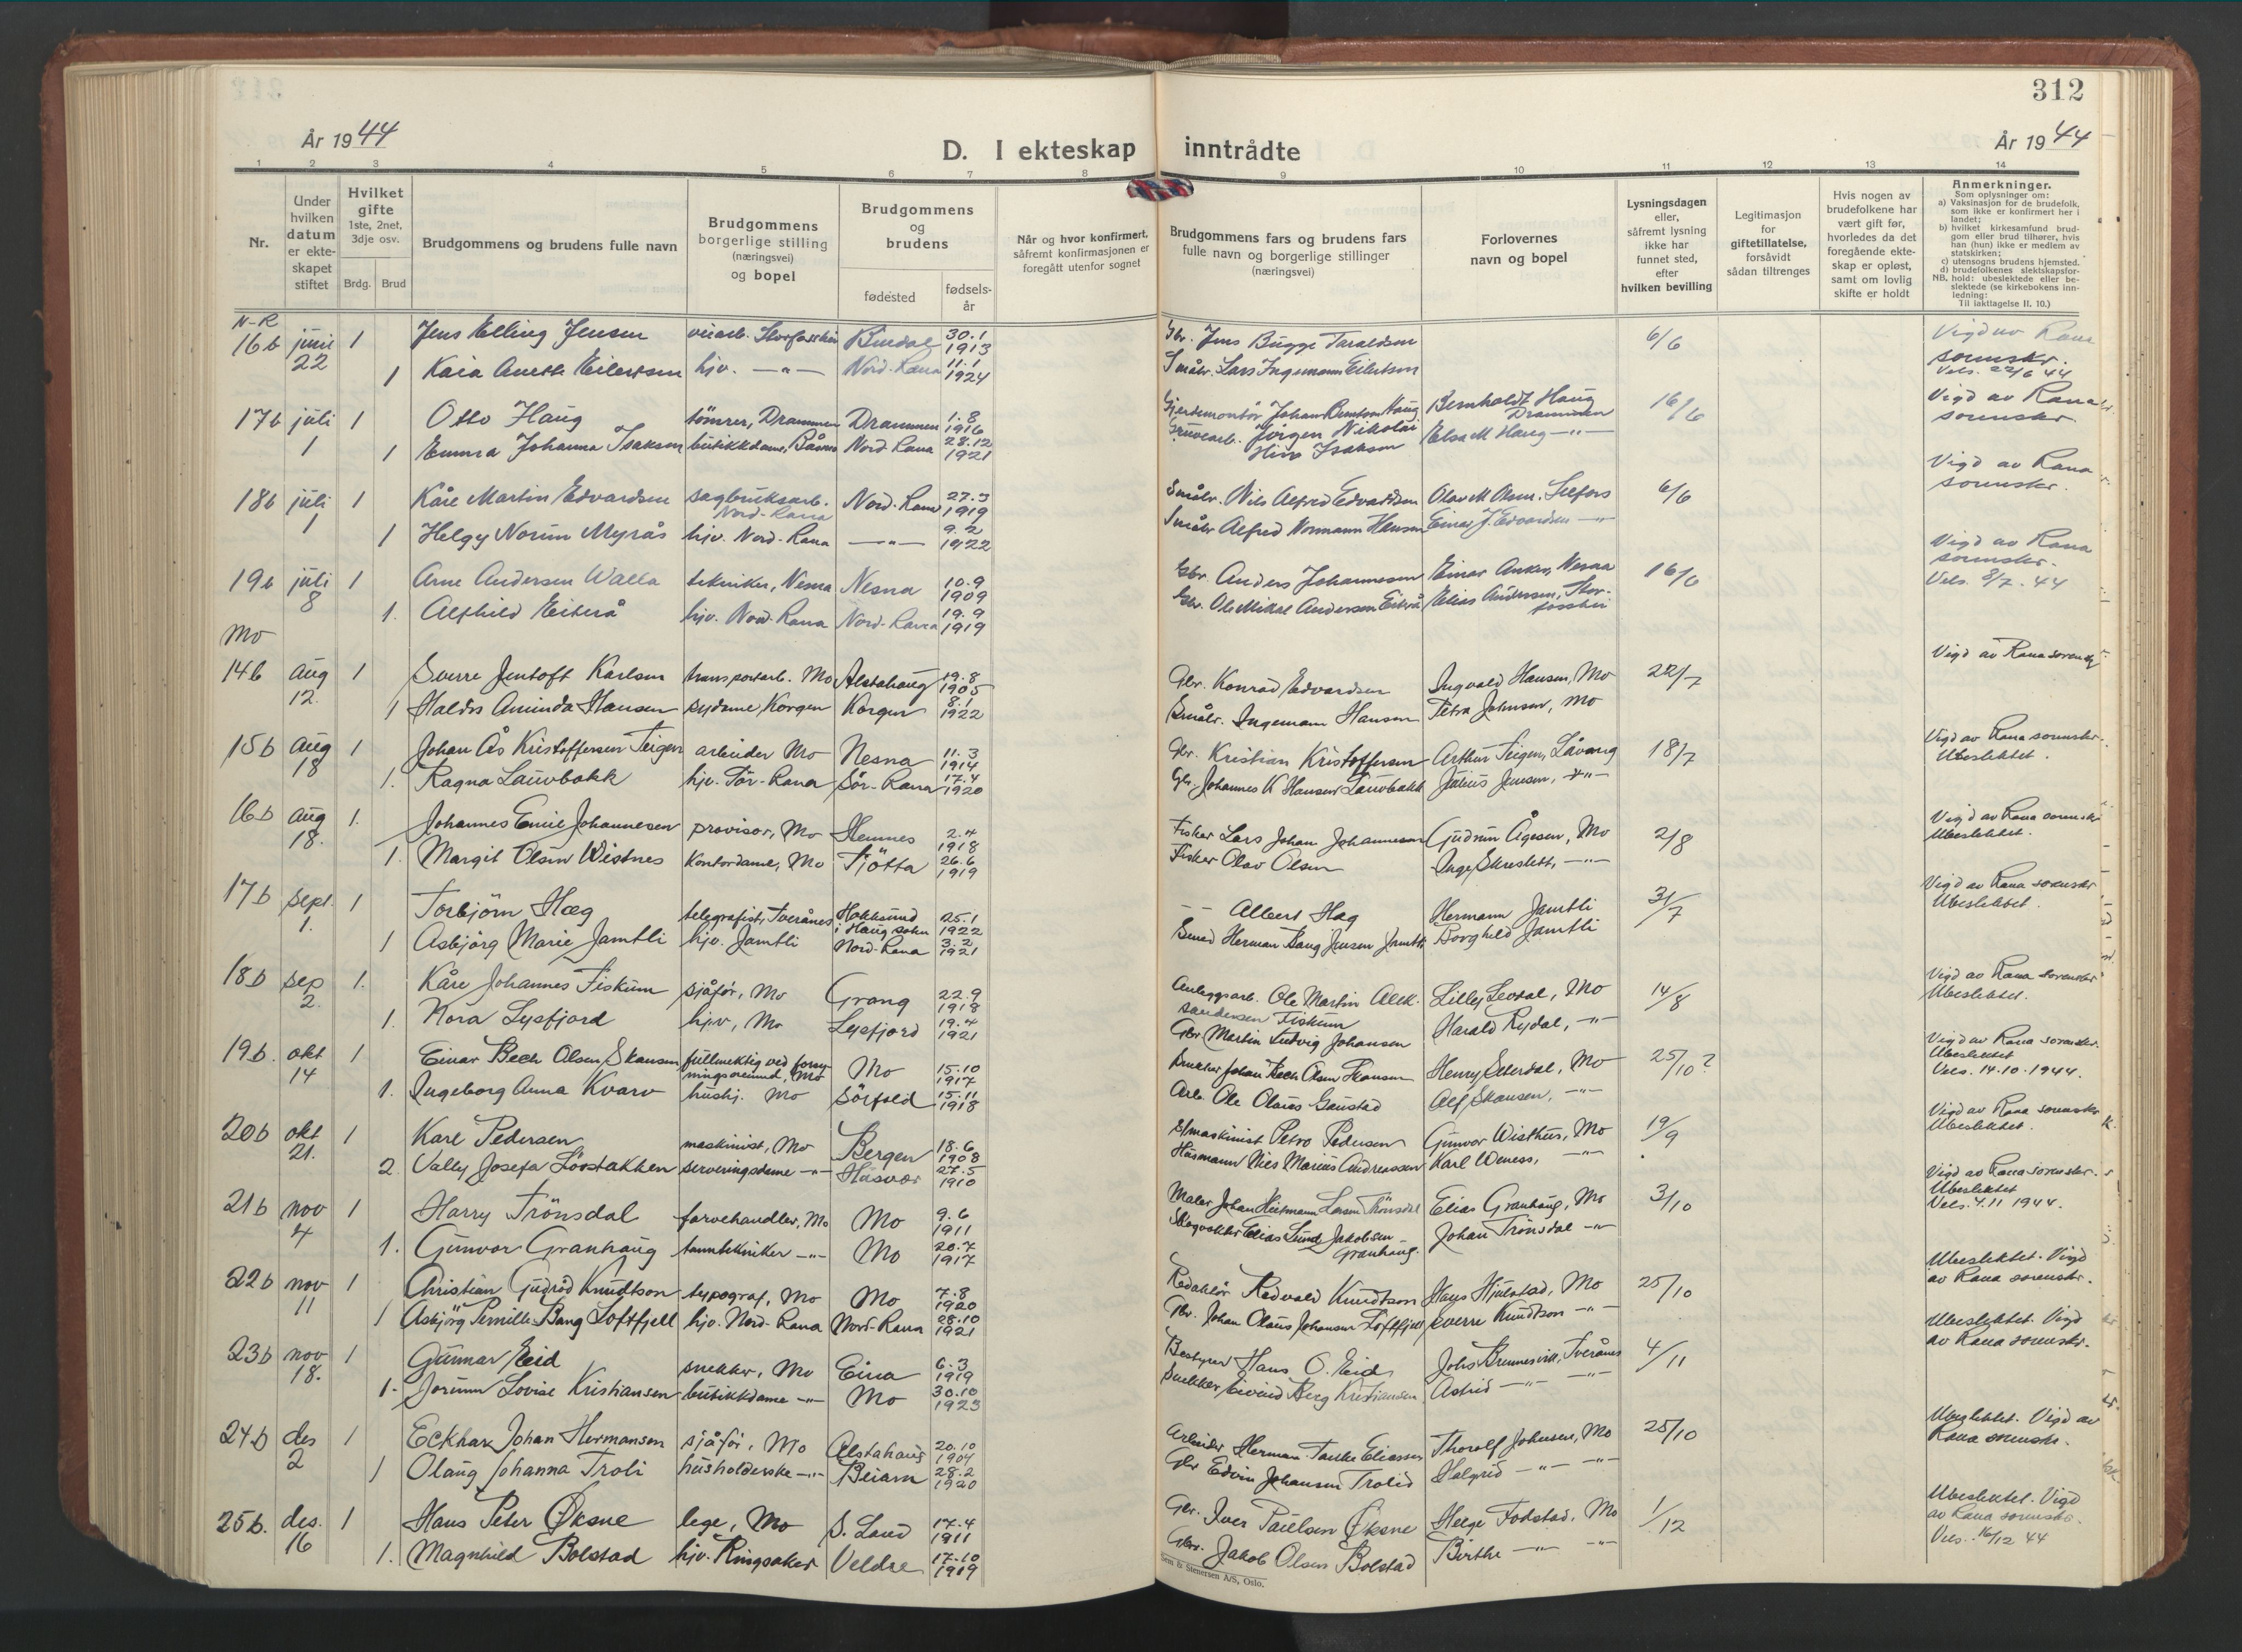 312
År 1944
D. I ekteskap inntrådte
År 1944
1 2 3 4 5 6 7 8 9 10 11 12 13 14
Nr.
Under hvilken datum er ekteskapet stiftet
Hvilket gifte 1ste, 2net, 3dje osv.
Brdg. Brud
Brudgommens og brudens fulle navn
Brudgommens borgerlige stilling (næringsvei) og bopel
Brudgommens og brudens
fødested
fødsels-år
Når og hvor konfirmert, såfremt konfirmasjonen er foregått utenfor sognet
Brudgommens fars og brudens fars fulle navn og borgerlige stillinger (næringsvei)
Forlovernes navn og bopel
Lysningsdagen eller, såfremt lysning ikke har funnet sted, efter hvilken bevilling
Legitimasjon for giftetillatelse, forsåvidt sådan tiltrenges
Hvis nogen av brudefolkene har vært gift før, hvorledes da det foregående ekteskap er opløst, samt om lovlig skifte er holdt
Anmerkninger.
Som oplysninger om:
a) Vaksinasjon for de brudefolk, som ikke er konfirmert her i landet;
b) hvilket kirkesamfund brudgom eller brud tilhører, hvis han (hun) ikke er medlem av statskirken;
c) utensogns brudens hjemsted.
d) brudefolkenes slektskapsforhold: ubeslektede eller beslektede (se kirkebokens innledning:
NB.
Til iakttagelse II. 10.)
N-R
16b juni 22 1 Jens Elling Jensen Bindal 30.1 1913 Gbr. Jens Bugge Taraldsen 6/6 Vigd av Rana sorenskr. Vels. 22/6 44
1 Kaia Anette Eilertsen hjv. —"— Nord-Rana 11.1 1924 Småbr. Lars Ingemann Eilertsen
17b juli 1 1 Otto Haug tömrer, Drammen Drammen 1.8 1916 Johan Haug Bernholdt Haug Drammen 16/6 Vigd av Rana sorenskr.
1 Emma Johanna Isaksen butikkdame, Båsmo Nord Rana 28.12 1921 Gruvearb. Jörgen Nikolai Isaksen Elsa M Haug —"—
18b juli 1 1 Kåre Martin Edvardsen sagbruksarb. Nord-Rana Nord-Rana 27.3 1919 Småbr. Nils Alfred Edvardsen Olav M Olsen, Selfors 6/6 Vigd av Rana sorenskr.
1 Helgy Norun Myrås hjv. Nord-Rana —"— 9.2 1922 Småbr Alfred Normann Hansen Einar J. Edvardsen —"—
19b juli 8 1 Arne Andersen Walla tekniker, Nesna Nesna 10.9 1909 Gbr. Anders Johannesen Einar Anker, Nesna 16/6 Vigd av Rana sorenskr. Vels. 8/7. 44
1. Alfhild Eiterå hjv. Nord-Rana Nord-Rana 19.9 1919 Gbr. Ole Mikal Andersen Eiterå Elias Andersen, Storfosshei
Mo
14b aug 12. 1 Sverre Jentoft Karlsen transportarb. Mo Alstahaug 19.8 1905 Gbr. Konrad Edvardsen Ingvald Hansen, Mo 22/7 Vigd av Rana sorenskr
1 Haldis Aminda Hansen sydame Korgen Korgen 8.1 1922 Småbr. Ingemann Hansen Petra Johnsen, Mo
15b aug 18 1 Johan Ås Kristoffersen Teigen arbeider Mo Nesna 11.3 1914 Gbr. Kristian Kristoffersen Arthur Teigen, Låvong 18/7 Vigd av Rana sorenskr. Ubeslektet.
1. Ragna Lauvbakk hjv. Sör-Rana Sör-Rana 17.4 1920 Gbr. Johannes K Hansen Lauvbakk Julius Jensen, —"—
16b aug 18. 1. Johannes Emil Johannesen provisor, Mo Hemnes 2.4 1918 Fisker Lars Johan Johannesen Gudrun Ågesen, Mo 2/8 Vigd av Rana sorenskr Ubeslektet.
1. Margit Olsen Wistnes Kontordame, Mo Tjötta 26.6 1919 Fisker Olav Olsen
17b sept. 1. 1 Torbjörn Hæg telegrafist, Tverånes Hokksund i Haug sokn 25.1 1922 —— Albert Hæg Hermann Jamtli 31/7 Vigd av Rana sorenskr Ubeslektet.
1 Asbjörg Marie Jamtli hjv. Jamtli Nord-Rana 3.2 1921 Smed Herman Bang Jensen Jamtli Borghild Jamtli
18b sep 2. 1. Kåre Johannes Fiskum sjåför, Mo Grong 22.9 1918 Anleggsarb. Ole Martin Aleksandersen Fiskum Lilly Levdal, Mo 14/8 Vigd av Rana sorenskr Ubeslektet.
1. Nora Lysfjord hjv, Mo Lysfjord 19.4 1921 Gbr Martin Ludvig Johansen Harald Rydal, —"—
19b. okt 14 1 Einar Bech Olsen Skansen fullmektig ved forsyningsnemnd, Mo Mo 15.10 1917 Johan Bech Olsen Skansen Henry Seterdal, Mo 25/10? Vigd av Rana sorenskr. Ubeslektet Vels. 14.10.1944.
1. Ingeborg Anna Kvarv hushj. Mo Sörfold 15.11 1918 Arb. Ole Olaus Gaustad Alf Skansen, —"—
20b okt 21. 1 Karl Pedersen maskinist, Mo Bergen 18.6 1908 S/maskinist Petro Pedersen Gunvor Wisthus, Mo 19/9 Vigd av Rana sorenskr Ubeslektet.
2. Vally Josefa Lövstakken serveringsdame —"— Husvær 27.5 1910 Husmann Nils Marius Andreassen Karl Weness, —"—
21b nov 4 1 Harry Trönsdal farvehandler, Mo Mo 9.6 1911 Maler Johan Heitmann Larsen Trönsdal Elias Granhaug, Mo 3/10 Vigd av Rana sorenskr. Ubeslektet Vels. 4.11 1944.
1. Gunvor Granhaug tanntekniker —"— Mo 20.7 1917 Skogvokter Elias Lund Jakobsen Granhaug. Johan Trönsdal —"—
22b nov 11 1 Christian Gudröd Knudtson typograf, Mo Mo 7.8 1920 Redaktör Redvald Knudtson Hans Hjulstad, Mo 25/10 Ubeslektet. Vigd av Rana sorenskr.
1 Asbjörg Pernille Bang Loftfjell hjv. Nord-Rana Nord-Rana 28.10 1921 Gbr. Johan Olaus Johansen Loftfjell Sverre Knudtson —"—
23b nov 18. 1 Gunnar Eid snekker, Mo Eina 6.3 1919 Bestyrer Hans O. Eid Johs Brennesvik, Tverånes 4/11 Ubeslektet. Vigd av Rana sorenskr.
1. Jorunn Lovise Kristiansen butikkdame —"— Mo 30.10 1923 Snekker Eivind Berg Kristiansen Astrid —"— —"—
24b des 2 1 Eckhar Johan Hermansen sjåför, Mo Alstahaug 20.10 1904 Arbeider Herman Eliassen Thorolf Johnsen, Mo 25/10 Ubeslektet. Vigd av Rana sorenskr.
1 Olaug Johanna Troli husholderske —"— Beiarn 28.2 1920 Gbr Edvin Johansen Trolid Halgrid —"— —"—
25b. des. 16 1 Hans Peter Øksne lege, Mo S. Land 17.4 1911 Gbr. Iver Paulsen Øksne Helge Fodstad, Mo 1/12 Ubeslektet. Vigd av Rana sorenskr. Vels. 16/12 44
1. Magnhild Bolstad hjv. Ringsaker Veldre 17.10 1919 Gbr. Jakob Olsen Bolstad Birthe —"— —"—
Sem & Stenersen A/S, Oslo.